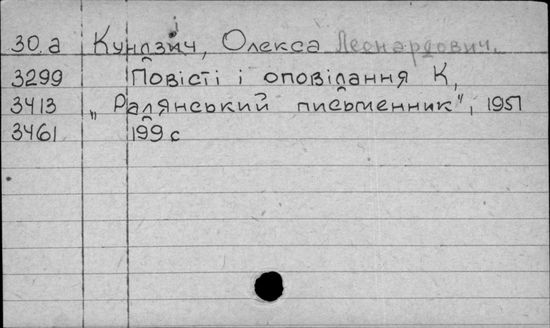 30.а Кундзіч, Олекса Леонардович.
3299 Повісті і оповідання К,
3413 „Радянський письменник", 1951
3461 199 с